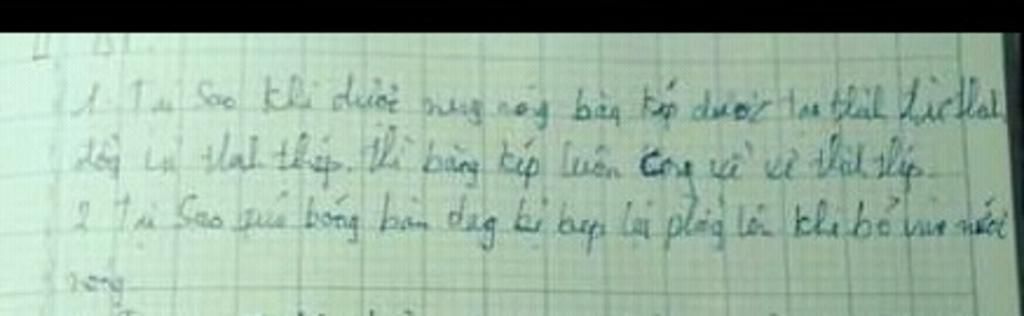 II BT.
1. Tại Sao khi được nung nóng băng kép được làm thành từ thah
đồng và thah thép. thì băng kép luôn cong về về thah thép.
2 Tại Sao quả bóng bàn đag bị bẹp lại phồg lên khi bỏ vào nước
nóng